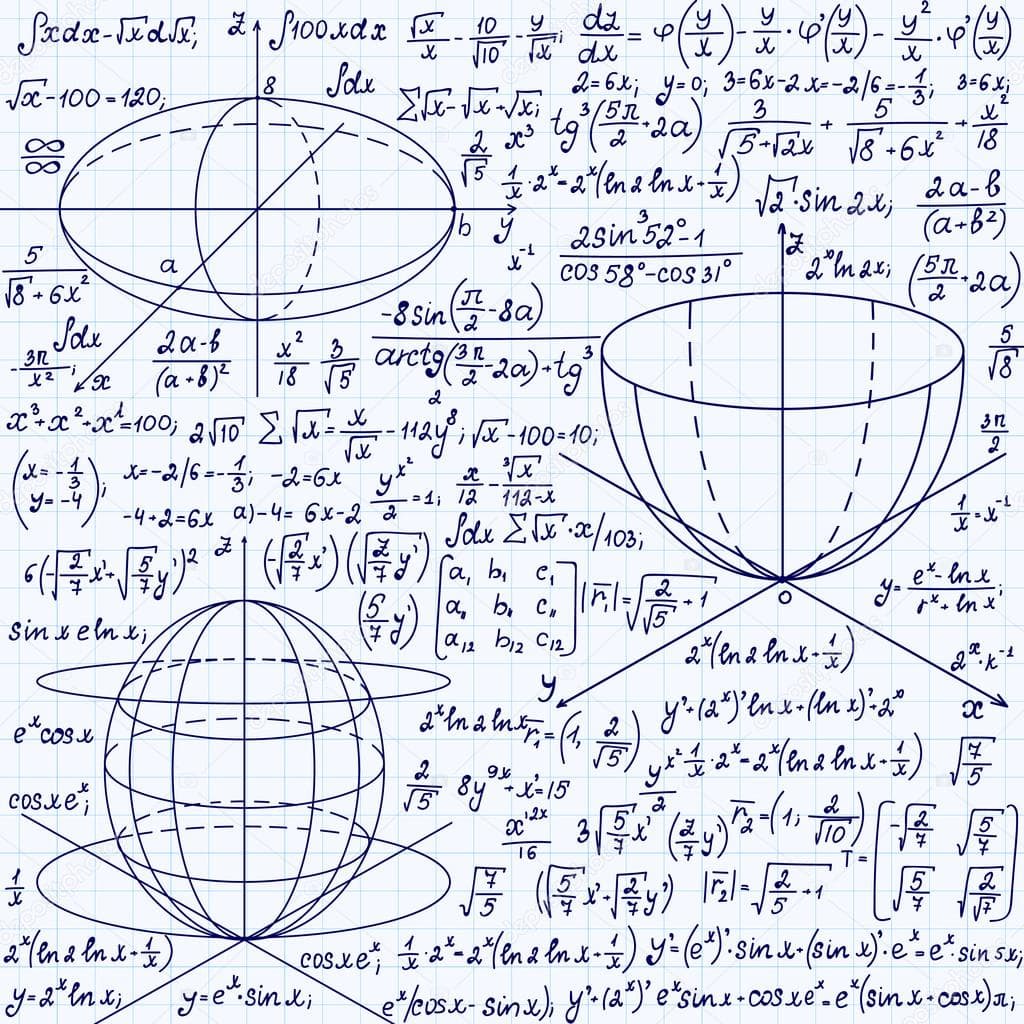 ∫xdx-√xd√x; z ∫100xdx √x/x - 10/√10 - y/√x; dz/dx = φ(y/x) - y/x · φ'(y/x) - y²/x · φ'(y/x)
√x-100=120; 8 ∫dx ∑√x-√x+√x; 2=6x; y=0; 3=6x-2 x=-2/6=-1/3; 3=6x;
∞/∞ 2/√5 x³ tg³(5π/2+2a) 3/√5+√2x + 5/√8+6x² + x²/18
1/x·2ˣ=2ˣ(ln2 lnx+1/x) √2·sin2x; 2a-b/(a+b²)
b y x⁻¹ 2sin³52°-1/cos58°-cos31° z 2ˣln2x; (5π/2+2a)
5/√8+6x² a
∫dx -3π/x²; x 2a-b/(a+b)² x²/18 3/√5 -8sin(π/2-8a)/arctg(3π/2-2a)+tg³ 5/√8
2
x³+x²+x¹=100; 2√10 ∑√x=x/√x-112y⁸; √x-100=10; 3π/2
(x=-1/3 y=-4); x=-2/6=-1/3; -2=6x yˣ²/2=1; x/12-³√x/112-x
-4+2=6x a)-4=6x-2 1/x=x⁻¹
∫dx ∑√x·x/103;
6(-√2/7x'+√5/7y')² z (-√2/7x')(√2/7y') a₁ b₁ c₁ |r₁|=√2/√5+1 o
(5/7y') a₁₁ b₁₁ c₁₁
sin x e ln x; a₁₂ b₁₂ c₁₂
2ˣ(ln2 lnx+1/x) 2ˣ·x⁻¹
y y'+(2ˣ)'lnx+(lnx)'+2ˣ x
eˣcosx 2ˣln2lnx r₁=(1, 2/√5)
yˣ²/2 1/x·2ˣ=2ˣ(ln2 lnx+1/x) √7/5
cosxeˣ; 2/√5 8y⁹ˣ+x'=15
x'²ˣ/16 3√5/7x' (2/7y') r₂=(1; 2/√10) T= -√2/7 √5/7
1/x √7/5 (√5/7x'+√2/7y') |r₂|=√2/5+1 √5/7 √2/√7
2ˣ(ln2 lnx+1/x) cosxeˣ; 1/x·2ˣ=2ˣ(ln2 lnx+1/x) y'=(eˣ)'·sinx+(sinx)'·eˣ=eˣ·sin5x;
y=2ˣlnx; y=eˣ·sinx; eˣ/cosx-sinx); y'+(2ˣ)'eˣsinx+cosxeˣ=eˣ(sinx+cosx)π;